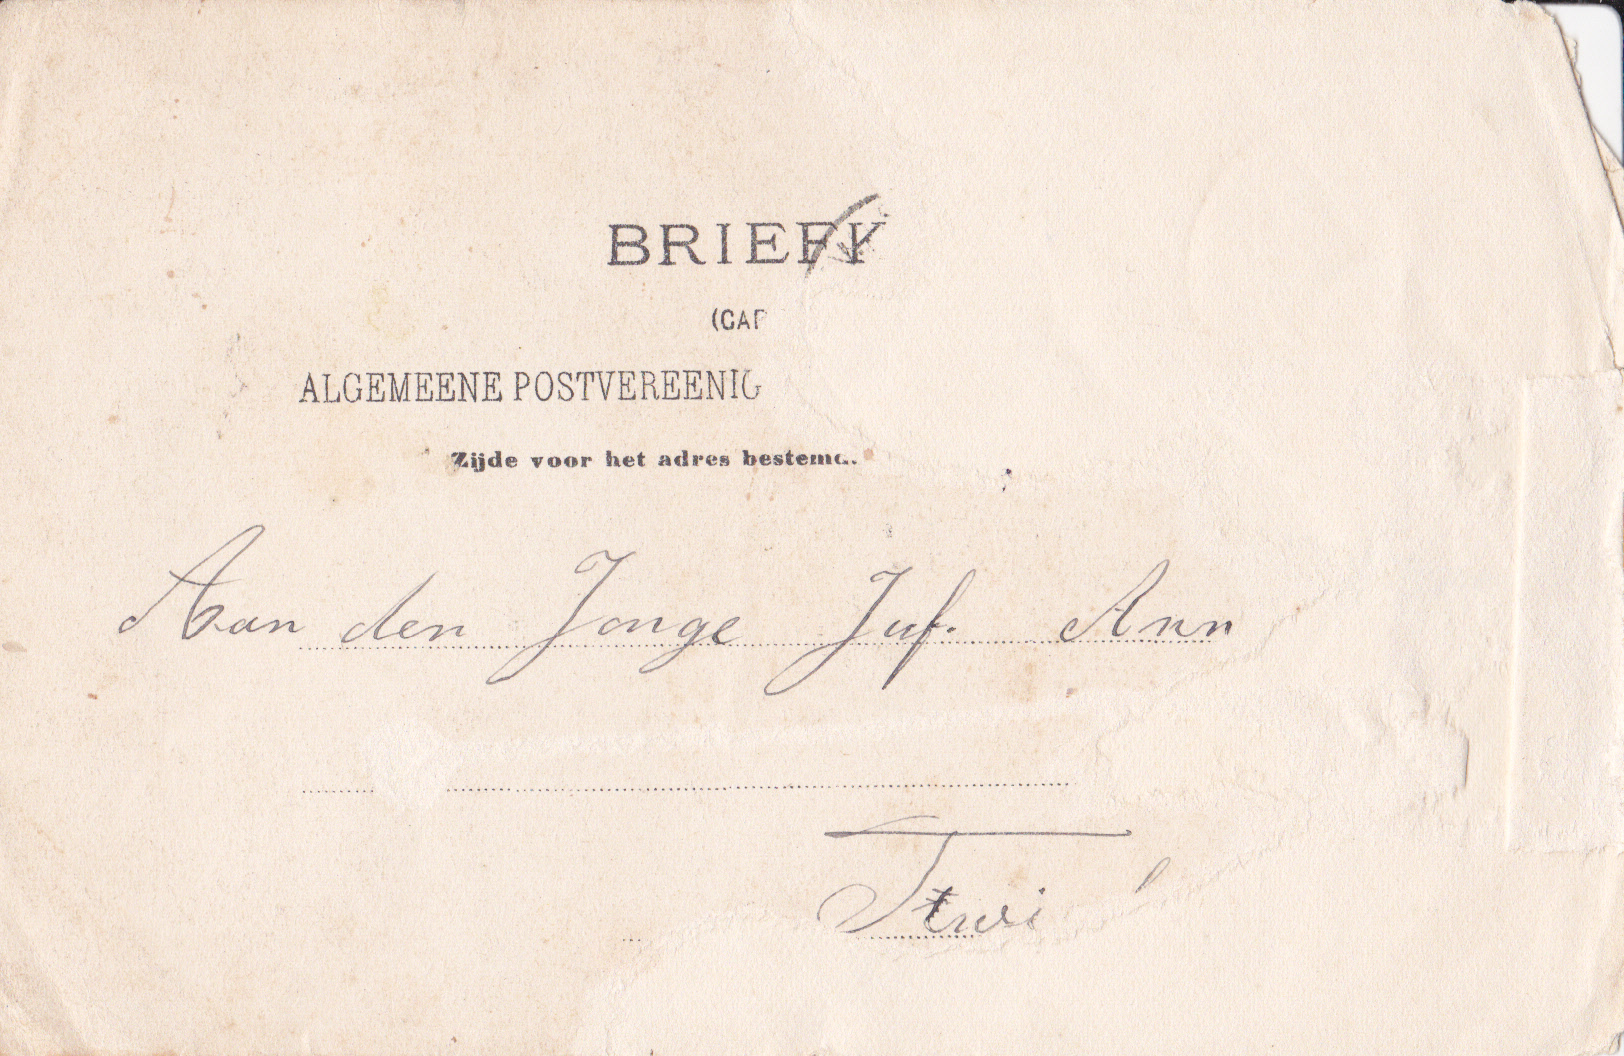 BRIEFK
(CAR
ALGEMEENE POSTVEREENIG
Zijde voor het adres bestemd.
Aan den Jonge Juf. Ann